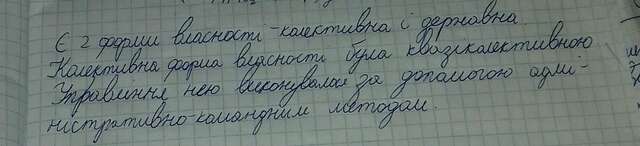 Є 2 форми власності - колективна і державна
Колективна форма власності була квазіколективною
Управління нею виконувалось за допомогою адмі-
ністративно-командним методам.